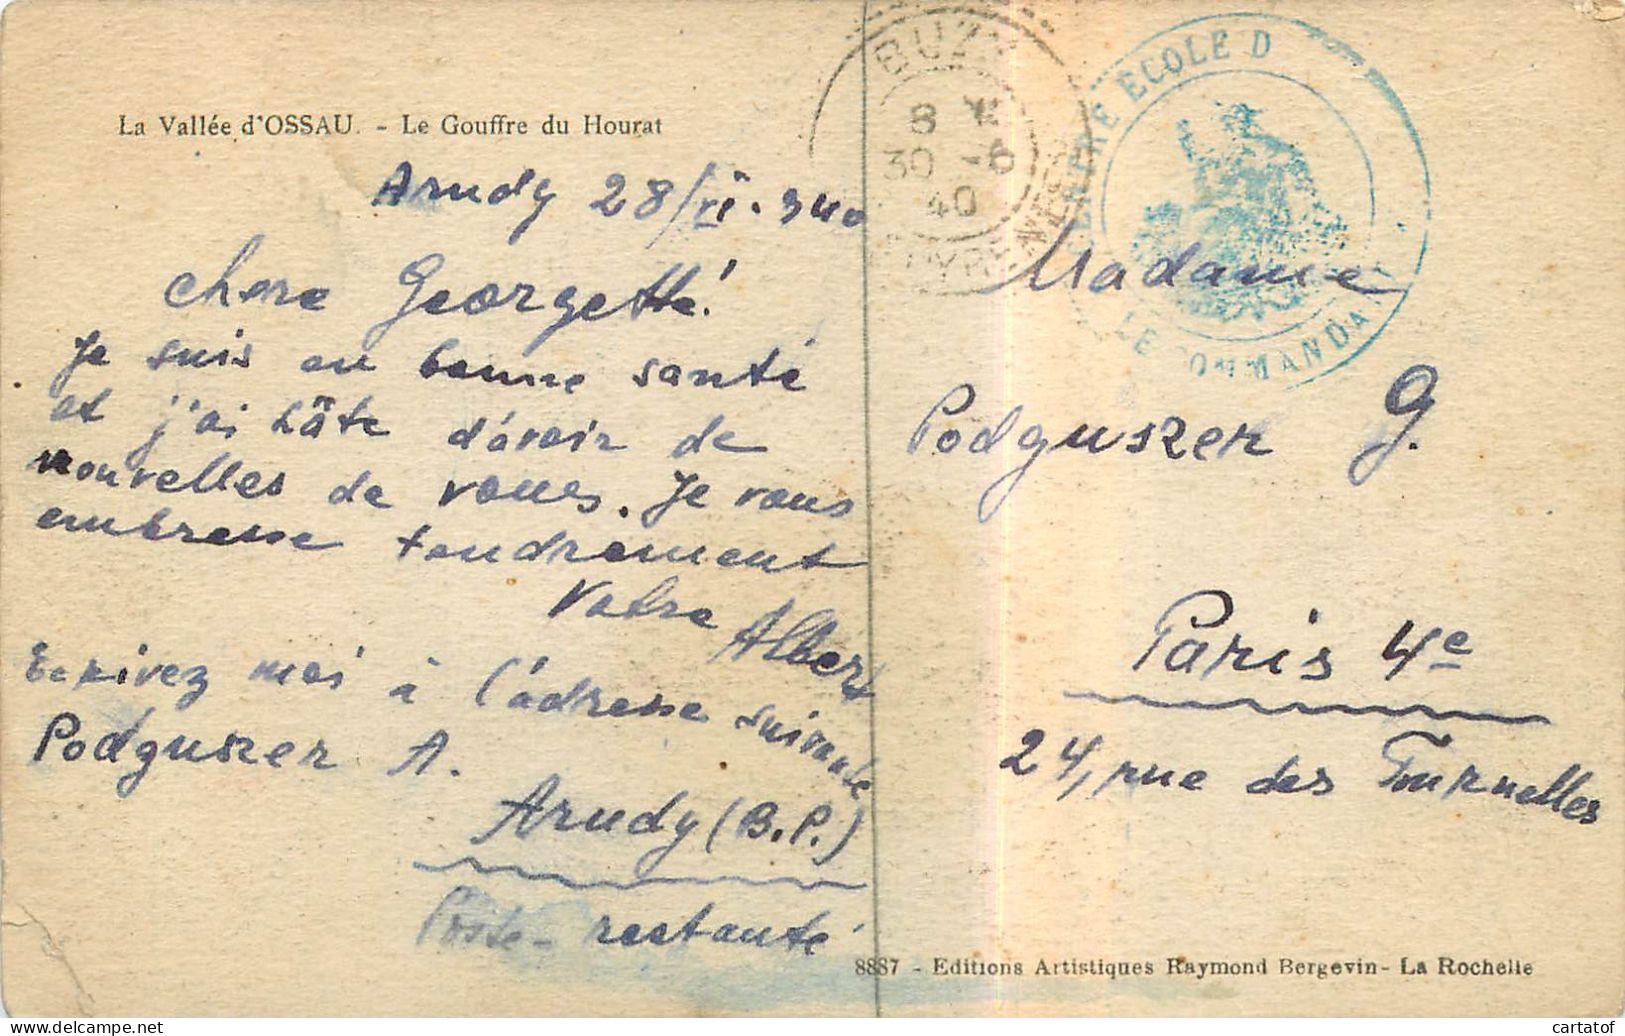 La Vallée d'OSSAU. - Le Gouffre du Hourat
Arudy 28/VI. 940
chere Georgette!
Je suis en bonne santé
et j'ai hâte d'avoir de
nouvelles de vous. Je vous
embrasse tendrement
Votre Albert
Ecrivez moi à l'adresse suivante
Podguszer A.
Arudy (B.P.)
Poste-restante
BUZY
8
30 -6
40
ECOLE D
LE COMMANDANT
Madame
Podguszer G.
Paris 4e
24, rue des Tournelles
8887 - Editions Artistiques Raymond Bergevin - La Rochelle
cartatof